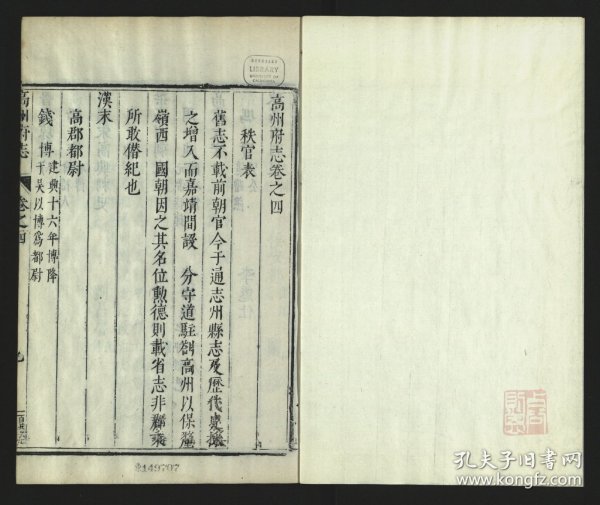 高州府志卷之四
秩官表
舊志不載前朝官今于通志州縣志及歷代
之增入而嘉靖間設 分守道駐劄高州以保釐
嶺西 國朝因之其名位勲德則載省志非郡乘
所敢僣紀也
漢末
高郡都尉
錢博 建興十六年博降
于吴以博爲都尉
高州府志
卷之四
LIBRARY
UNIVERSITY OF
CALIFORNIA
149707
孔夫子旧书网
www.kongfz.com